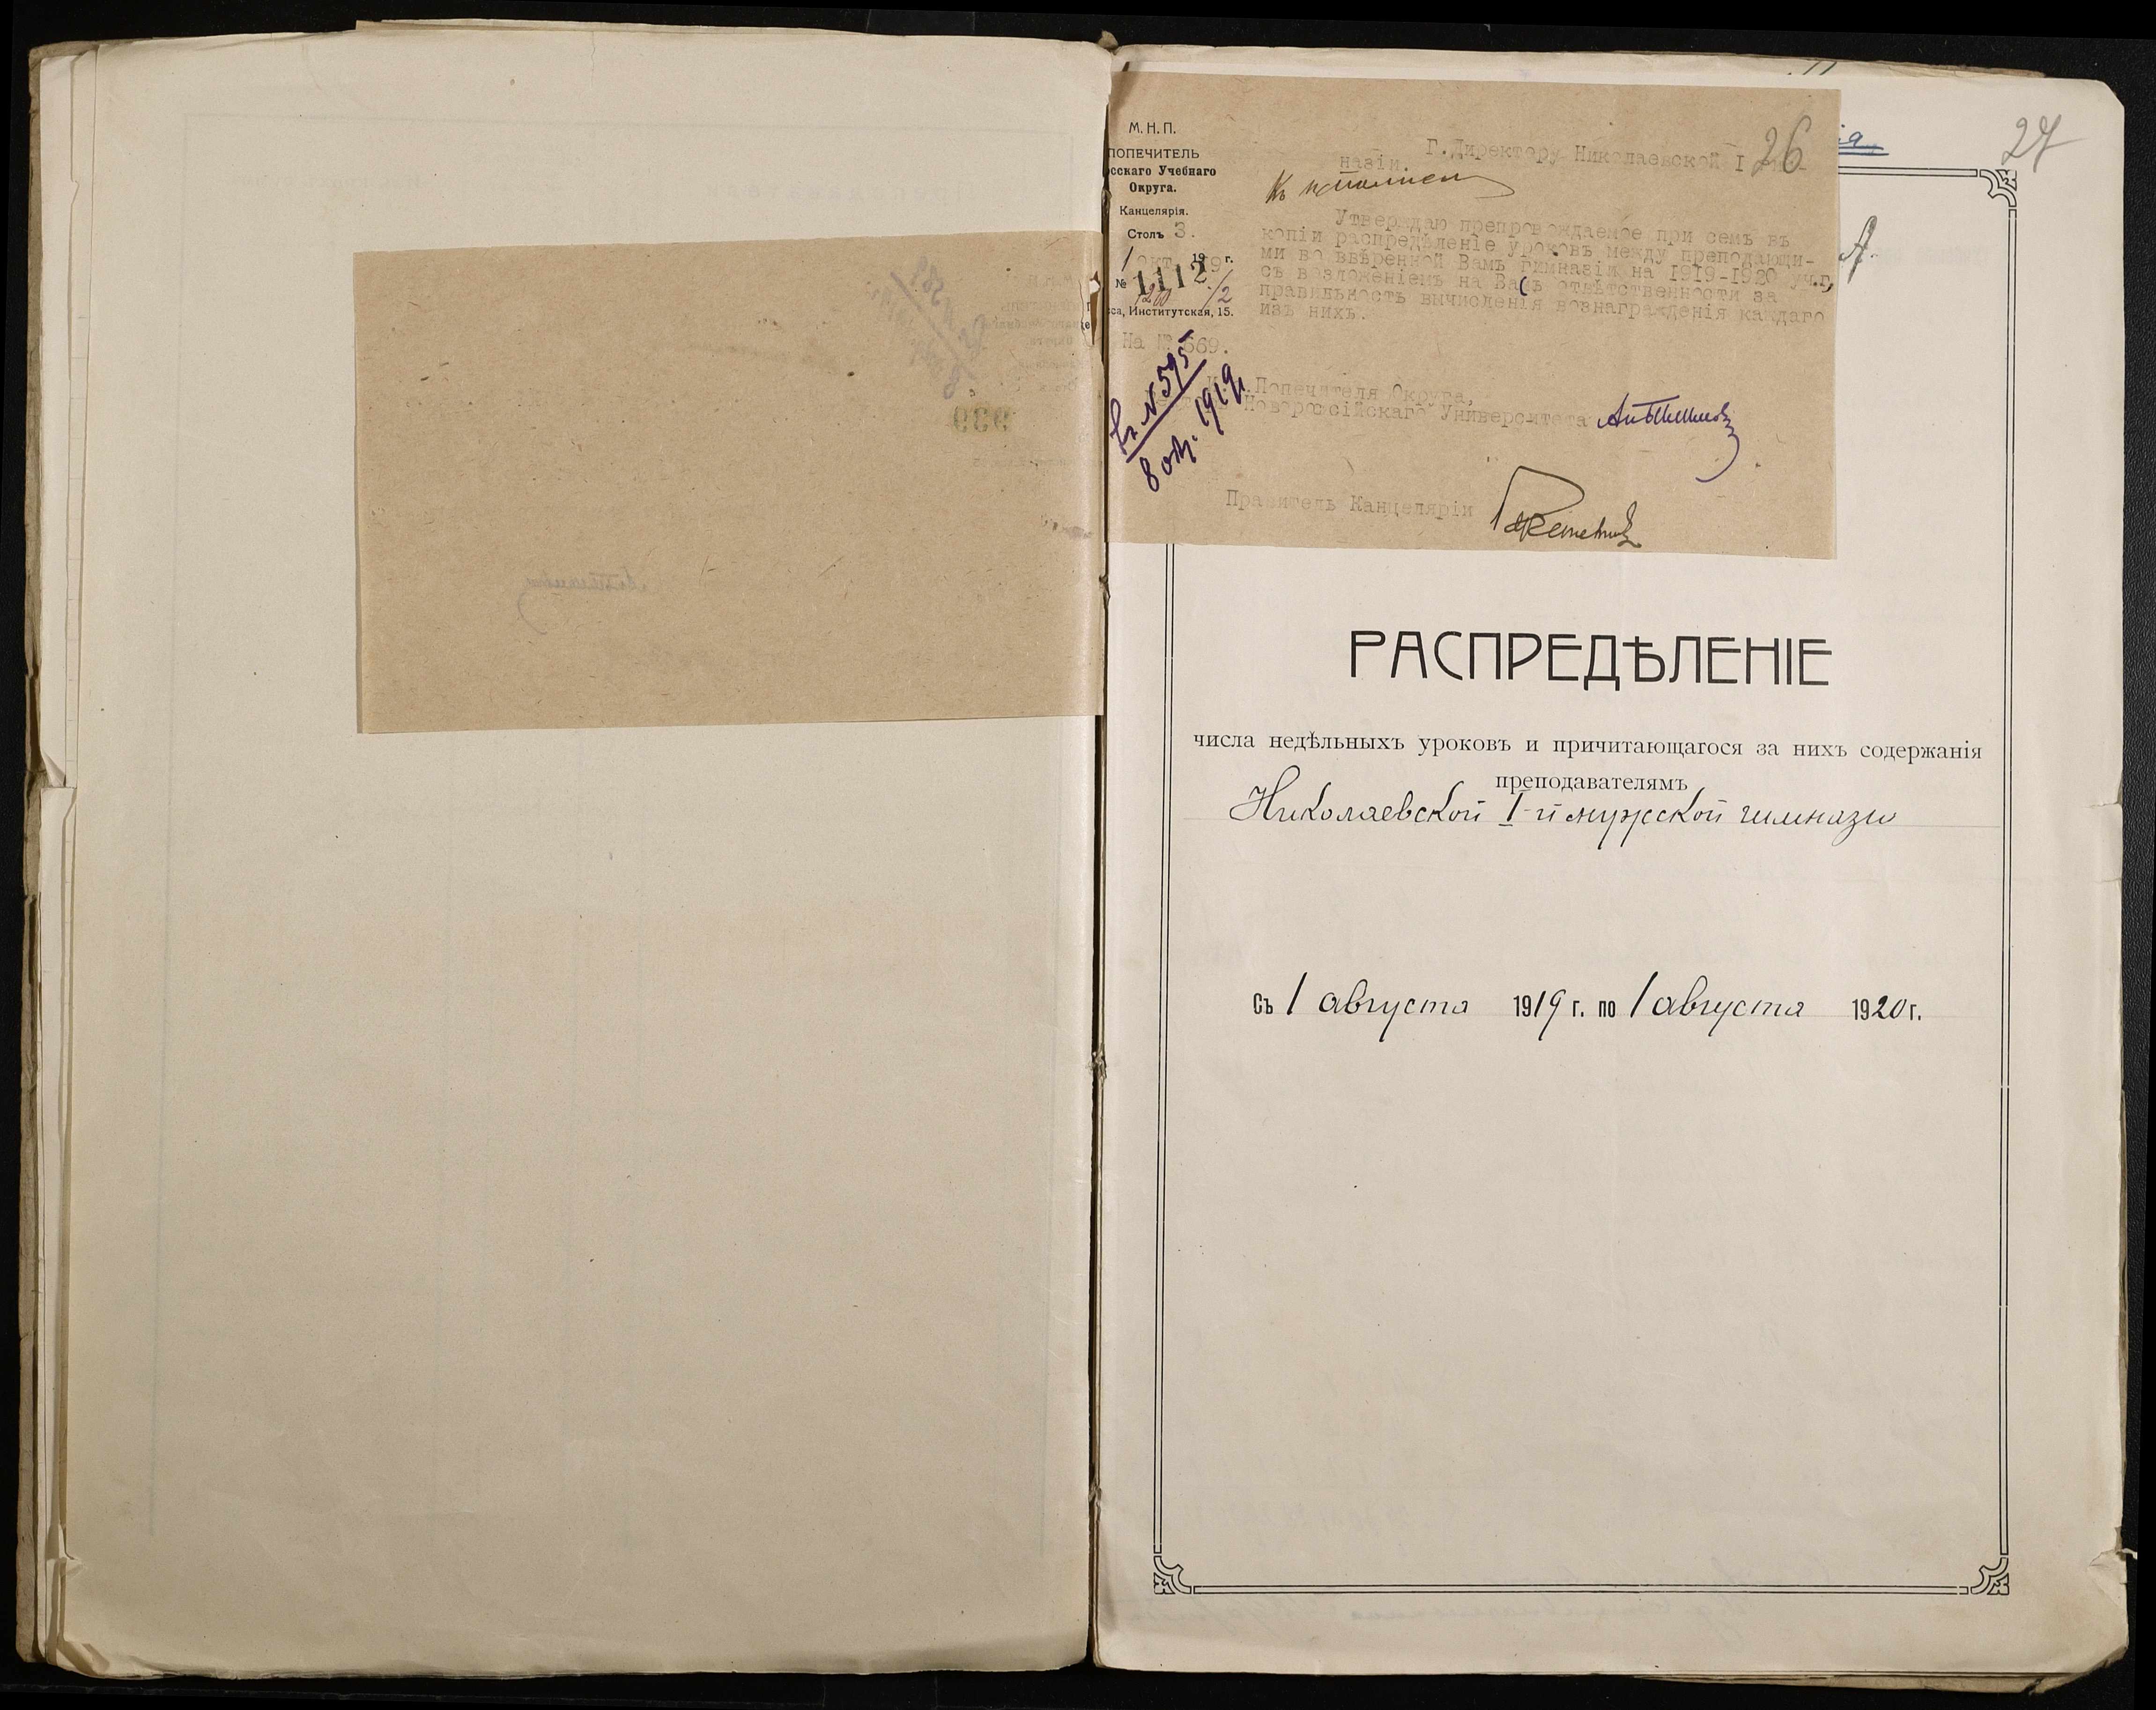 27
26
М. Н. П.
ПОПЕЧИТЕЛЬ
сскаго Учебнаго
Округа.
Канцелярія.
Столъ 3.
1 окт. 1919 г.
№ 1112
1200 /2
са, Институтская, 15.
На № 669.
Вх. № 595
8 окт. 1919 г.
Г.Директору Николаевской I
назіи.
Къ исполнен
Утверждаю препровождаемое при семъ въ
копіи распредѣленіе уроковъ между преподающи-
ми во ввѣренной Вамъ гимназіи на 1919-1920 уч.г.,
съ возложеніемъ на Васъ отвѣтственности за
правильность вычисленія вознагражденія каждаго
изъ нихъ.
.Попечителя Округа,
Новороссійскаго Университета
Правитель Канцеляріи
РАСПРЕДѢЛЕНІЕ
числа недѣльныхъ уроковъ и причитающагося за нихъ содержанія
преподавателямъ
Николаевской I-й мужской гимназіи
Съ 1 августа 1919 г. по 1 августа 1920 г.